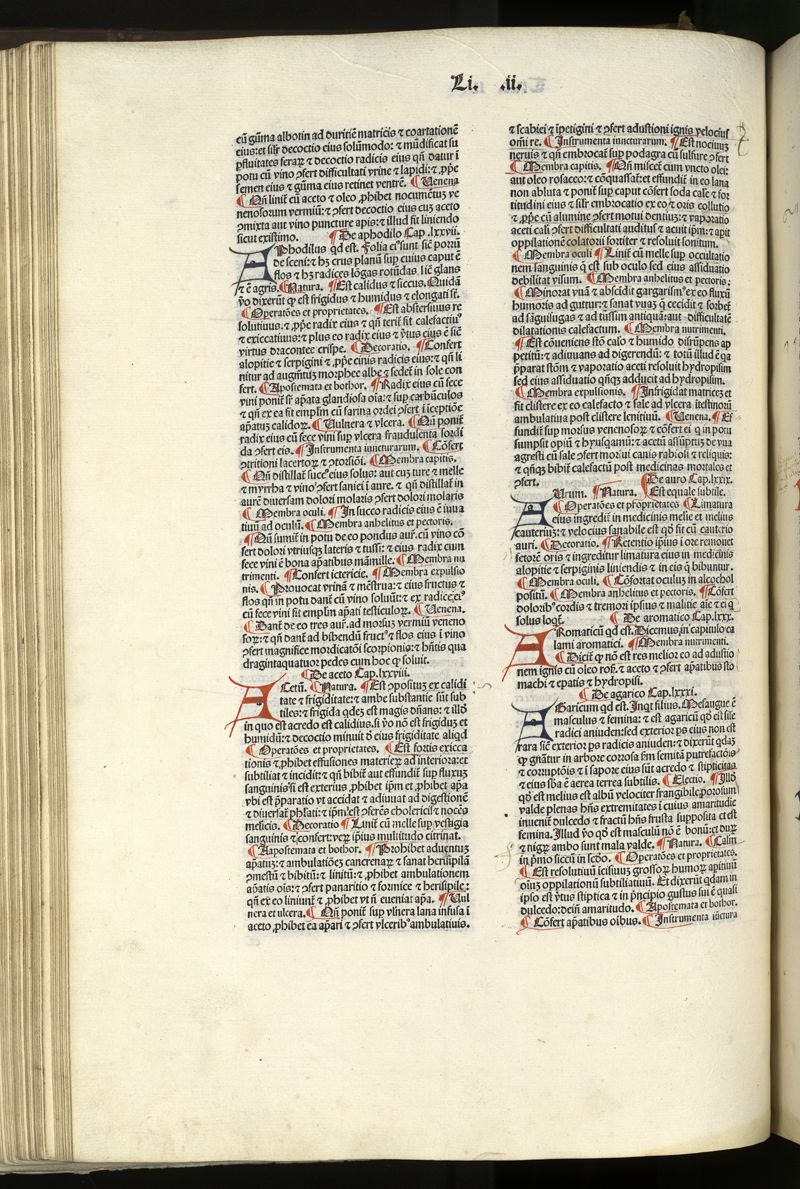 Li. .ii.
cū gūma albotin ad duritiē matricis ⁊ coartationē
eius: et silr decoctio eius solūmodo: ⁊ mūdificat su
pfluitates ferar̄ ⁊ decoctio radicis eius qñ datur ī
potu cū vino ꝯfert difficultati vrine ⁊ lapidi: ⁊ ꝓpe
semen eius ⁊ gūma eius retinet ventrē. ¶ Venena
¶ Qñ linit̄ cū aceto ⁊ oleo ꝓhibet nocumētuꝫ ve
nenosorum vermiū: ⁊ ꝯfert decoctio eius cuꝫ aceto
ꝯmixta aut vino puncture apis: ⁊ illud fit liniendo
sicut existimo. ¶ De aphodilo Cap. lxxvii.
APhodilus qd est. Folia ei⁹ sunt sic̄ porrū
de sceni: ⁊ hꝫ crus planū suꝑ cuius caput ē
flos ⁊ hꝫ radices lōgas rotūdas
ē agris. ¶ Natura. ¶ Est calidus ⁊ siccus. Quidā
vo dixerūt qꝫ est frigidus ⁊ humidus ⁊ elongati st̄.
¶ Operatōes et proprietates. ¶ Est abstersiuus re
solutiuus: ⁊ ꝓpe radix eius ⁊ qñ terit̄ fit calefactiu⁹
⁊ exiccatiuus: ⁊ plus eo radix eius ⁊ v̄tus eius ē sic̄
virtus dracontee crispe. ¶ Decoratio. ¶ Confert
alopitie ⁊ serpigini ⁊ ꝓpe cinis radicis eius: ⁊ qñ li
nitur ad augmētuꝫ morphee albe ⁊ sedet̄ in sole con
fert. ¶ Apostemata et bothor. ¶ Radix eius cū fece
vini ponit̄ sr̄ apata glandiosa oīa: ⁊ suꝑ carbūculos
⁊ qñ ex ea fit emplm̄ cū farina ordei ꝯfert ī īceptiōe
apatuꝫ calidor̄. ¶ Vulnera ⁊ vlcera. ¶ Qñ ponit̄
radix eius cū fece vini suꝑ vlcera fraudulenta sordi
da ꝯfert eis. ¶ Instrumenta iuncturarum. ¶ Cōfert
ꝯtritioni lacertor̄ ⁊ ꝯtorsiōi. ¶ Membra capitis.
¶ Qñ distillat̄ succ⁹ eius solus: aut cuꝫ ture ⁊ melle
⁊ myrrha ⁊ vino ꝯfert saniei ī aure. ⁊ qñ distillat̄ in
aurē diuersam dolori molaris ꝯfert dolori molaris
¶ Membra oculi. ¶ In succo radicis eius ē iuua
tiuū ad oculū. ¶ Membra anhelitus et pectoris.
¶ Qñ sumit̄ in potu de eo pondus aur̄. cū vino cō
fert dolori vtriusqꝫ lateris ⁊ tussi: ⁊ eius radix cum
fece vini ē bona apatibus māmille. ¶ Membra nu
trimenti. ¶ Confert ictericie. ¶ Membra expulsio
nis. ¶ Prouocat vrinā ⁊ mēstrua: ⁊ eius fructus ⁊
flos qñ in potu dant̄ cū vino soluūt: ⁊ ex radice ei⁹
cū fece vini fit emplm̄ apati testiculor̄. ¶ Venena.
¶ Dant̄ de eo tres aur̄. ad morsuꝫ vermiū veneno
sor̄: ⁊ qñ dant̄ ad bibendū fruct⁹ ⁊ flos eius ī vino
ꝯfert magnifice mordicatōi scorpionis: ⁊ hn̄tis qua
dragintaquatuor pedes cum hoc qꝫ soluit.
¶ De aceto Cap. lxxviii.
ACetū. ¶ Natura. ¶ Est ꝯpositūꝫ ex calidi
tate ⁊ frigiditate: ⁊ ambe substantie sūt sub
tiles: ⁊ frigida qdeꝫ est magis dn̄ans: ⁊ illō
in quo est acredo est calidius. si vō nō est frigiduꝫ et
humidū: ⁊ decoctio minuit ō eius frigiditate aliqd
¶ Operatōes et proprietates. ¶ Est fortis exicca
tionis ⁊ ꝓhibet effusiones materieꝫ ad interiora: et
subtiliat ⁊ incidit: ⁊ qñ bibit̄ aut effundit̄ suꝑ fluxuꝫ
sanguinis si est exterius ꝓhibet ipm̄ et ꝓhibet apa
vbi est ꝑparatio vt accidat ⁊ adiuuat ad digestionē
⁊ diuersat̄ phlati: ⁊ ipm̄ est ꝯferēs cholericis ⁊ nocēs
melicis. ¶ Decoratio ¶ Linit̄ cū melle suꝑ vestigia
sanguinis ⁊ confert: verꝫ ipsius multitudo citrinat.
¶ Aapostemata et bothor. ¶ Prohibet aduentuꝫ
apatuꝫ: ⁊ ambulatiōeꝫ cancrenar̄ ⁊ sanat herisipilā
ꝯmestū ⁊ bibitū: ⁊ linitū: ⁊ ꝓhibet ambulationem
apatis oīs: ⁊ ꝯfert panaritio ⁊ formice ⁊ herisipile:
qñ ex eo liniunt̄ ⁊ ꝓhibet vt ñ eueniat apa. ¶ Vul
nera et vlcera. ¶ Qñ ponit̄ suꝑ vlnera lana infusa ī
aceto ꝓhibet ea apari ⁊ ꝯfert vlcerib⁹ ambulatiuis.
⁊ scabiei ⁊ īpetigini ⁊ ꝯfert adustioni ignis velocius
omī re. ¶ Instrumenta iuncturarum. ¶ Est nociuuꝫ
neruis ⁊ qñ embrocat̄ suꝑ podagra cū sulfure ꝯfert
¶ Membra capitis. ¶ Qñ miscet̄ cum vncto olei:
aut oleo rosaceo: ⁊ cōquassat̄: et effundit̄ in eo lana
non abluta ⁊ ponit̄ suꝑ caput cōfert soda cale ⁊ for
titudini eius ⁊ silr embrocatio ex eo ⁊ oris collutio
⁊ ꝓpe cū alumine ꝯfert motui dentiuꝫ: ⁊ vaporatio
aceti cali ꝯfert difficultati auditus ⁊ acuit ipm̄: ⁊ apit
oppilationē colatorii fortiter ⁊ resoluit sonitum.
¶ Membra oculi ¶ Linit̄ cū melle suꝑ occultatio
nem sanguinis q̄ est sub oculo sed eius assiduatio
debilitat visum. ¶ Membra anhelitus et pectoris:
¶ Minorat vuā ⁊ abscidit gargarism⁹ ex eo fluxū
humoris ad guttur: ⁊ sanat vuaꝫ q̄ cecidit ⁊ sorbet̄
ad sāguisugas ⁊ ad tussim antiquā: aut difficultatē
dilatationis calefactum. ¶ Membra nutrimenti.
¶ Est cōueniens stō caīo ⁊ humido disrūpens ap
petitū: ⁊ adiuuans ad digerendū: ⁊ totū illud ē qa
ꝑparat stōm ⁊ vaporatio aceti resoluit hydropisim
sed eius assiduatio qñqꝫ adducit ad hydropisim.
¶ Membra expulsionis. ¶ Infrigidat matriceꝫ et
fit clistere ex eo calefacto ⁊ sale ad vlcera ītestinorū
ambulatiua post clistere lenitiuū. ¶ Venena. ¶ Ef
fundit̄ suꝑ morsus venenosor̄ ⁊ cōfert ei q in potu
sumpsit opiū ⁊ hyusqamū: ⁊ acetū assūptuꝫ de vua
agresti cū sale ꝯfert morsui canis rabiosi ⁊ reliquis:
⁊ qñqꝫ bibit̄ calefactū post medicinas mortales et
ꝯfert. ¶ De auro Cap. lxxix.
AUrum. ¶ Natura. ¶ Est equale subtile.
¶ Operatōes et proprietates ¶ Limatura
eius ingredit̄ in medicinis melie et melius
cauteriuꝫ: ⁊ velocius sanabile est qō fit cū cauterio
auri. ¶ Decoratio. ¶ Retentio ipsius ī ore remouet
fetorē oris ⁊ ingreditur limatura eius in medicinis
alopitie ⁊ serpiginis liniendis ⁊ in eis q̄ bibuntur.
¶ Membra oculi. ¶ Cōfortat oculuꝫ in alcochol
positū. ¶ Membra anhelitus et pectoris. ¶ Cōfert
dolorib⁹ cordis ⁊ tremori ipsius ⁊ malitie aīe ⁊ ei q
solus loqt̄. ¶ De aromatico Cap. lxxx.
ARomaticū qd est. Dicemus, in capitulo ca
lami aromatici. ¶ Membra nutrimenti.
¶ Dicit̄ qꝫ nō est res melior eo ad adustio
nem ignis cū oleo ros̄. ⁊ aceto ⁊ ꝯfert apatibus sto
machi ⁊ epatis ⁊ hydropisi.
¶ De agarico Cap. lxxxi.
AGaricum qd est. Inqt filius. Mesangue ē
masculus ⁊ femina: ⁊ est agaricū qō est sile
radici aniuden: sed exterior ꝑs eius non est
rara sic̄ exterior ꝑs radicis aniuden: ⁊ dixerūt qdaꝫ
qꝫ gn̄atur in arbore corrosa fm̄ semitā putrefactōis
⁊ corruptōis ⁊ ī sapore eius sūt acredo ⁊ stipticitas
⁊ eius sba ē aerea terrea subtilis. ¶ Electio. ¶ Illō
qō est melius est albū velociter frangibile porosum
valde plenas hn̄s extremitates ī cuius amaritudie
inuenit̄ dulcedo ⁊ fractū hn̄s frusta supposita et est
femina. Illud vō qō est masculū nō ē bonū: et dur̄
⁊ nigr̄ ambo sunt mala valde. ¶ Natura. ¶ Calm̄
in pmo siccū in scdo. ¶ Operatōes et proprietates.
¶ Est resolutiuū icisiuuꝫ grossor̄ humor̄ apitiuū
oīuꝫ oppilationū subtiliatiuū. Et dixerūt qdam in
ipso est v̄tus stiptica ⁊ in pncipio gustus sui ē quasi
dulcedo: dein̄ amaritudo. ¶ Apostemata et bothor.
¶ Cōfert apatibus oībus. ¶ Instrumenta iūctura